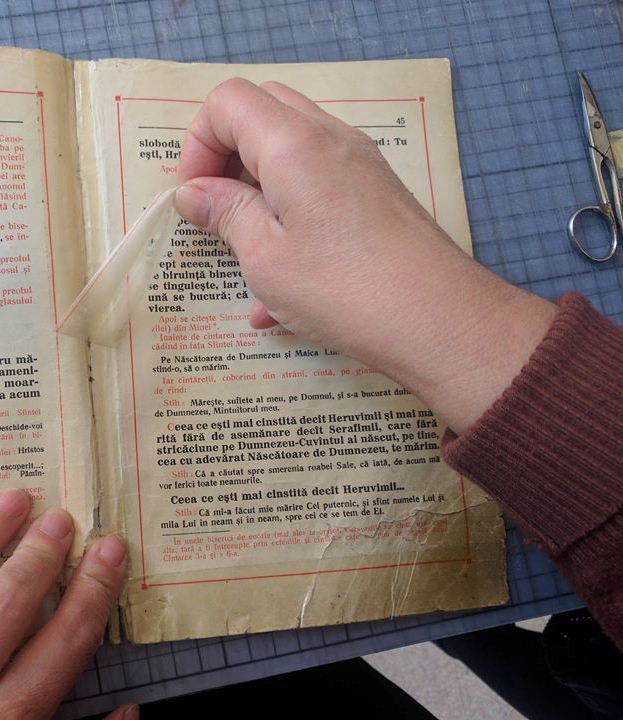 Cano-
ba pe
nvierii
Dum-
ei are
anonul
lăsînd
tă Ca-
e bise-
, se în-
preotul
cosul și
preotul
glasului
ru mă-
ameni-
moar-
a acum
rii Sfintei
Deschide-voi
tării în bi-
Hristos
escoperit...;
Pămîn-
45
slobodă nd: Tu
ești, Hri
Apoi
pe
ronosi,
lor, celor
e vestindu-i
ept aceea, feme
e biruință bineve
se tinguiește, iar
ună se bucură; că
vierea.
Apoi se citește Sinaxar
zilei) din Minei*.
Înainte de cîntarea noua a Canon
cădind în fața Sfintei Mese:
Pe Născătoarea de Dumnezeu și Maica Lu
stind-o, să o mărim.
Iar cîntăreții, coborînd din strâni, cîntă, pe glas
de rînd:
Stih: Mărește, suflete al meu, pe Domnul, și s-a bucurat duhu
de Dumnezeu, Mîntuitorul meu.
Ceea ce ești mai cinstită decît Heruvimii și mai mă
rită fără de asemănare decît Serafimii, care fără
stricăciune pe Dumnezeu-Cuvîntul ai născut, pe tine,
cea cu adevărat Născătoare de Dumnezeu, te mărim.
Stih: Că a căutat spre smerenia roabei Sale, că iată, de acum mă
vor ferici toate neamurile.
Ceea ce ești mai cinstită decît Heruvimii...
Stih: Că mi-a făcut mie mărire Cel puternic, și sfînt numele Lui și
mila Lui în neam și în neam, spre cei ce se tem de El.
În unele biserici de enorie (mai ales
alta, fără a fi întrerupte prin ecteniile și
Cîntarea 3-a și a 6-a.